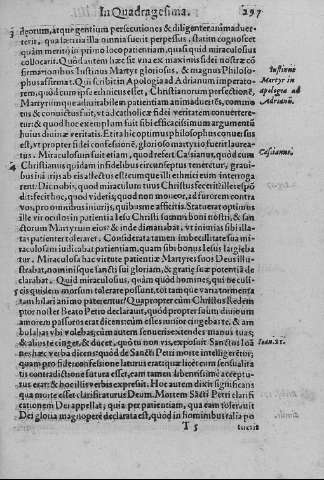 In Quadragesima. 297
deorum, atque gentium persecutiones & diligenter animaduer-
teris, qua lætitia illi omnia sueuit perpessus, statim cognoscet
quàm merito in primo loco patientiam, quasi quid miraculosius
collocarit. Quòd autem hæc sit vna ex maximis fidei nostræ cõ
firmationibus Iustinus Martyr gloriosus, & magnus Philoso-
phus affirmat. Qui scribit in Apologia ad Adrianum imperato-
rem, quòd cum ipse ethnicus esset, Christianorum perfectionẽ,
Martyrumque admirabilem patientiam animaduertẽs, commo
tus & conuictus fuit, vt ad catholicæ fidei veritatem conuerte-
retur: & quòd hoc exemplum fuit sibi efficacissimum argumentũ
huius diuinæ veritatis. Et ita hic optimus philosophus conuersus
est, vt propter fidei confessionẽ, glorioso martyrio fuerit laurea-
tus. Miraculosum fuit etiam, quod refert Casianus, quòd cum
Christianus quidam infidelibus circunseptus teneretur, graui-
bus iniurijs ab eis affectus est eumque illi ethnici eum interroga
rent. Dic nobis, quod miraculum tuus Christus fecerit: ille respõ
dit: fecit hoc, quod videtis, quòd non mouear, ad furorem contra
vos, pro omnibus iniurijs, quibus me afficitis. Statuerat optimus
ille vir oculos in patientia Iesu Christi summi boni nostri, & san
ctorum Martyrum eius: & inde dimanabat, vt iniurias sibi illa-
tas patienter toleraret. Considerata tamen imbecillitate sua mi-
raculosum iudicabat patientiam, quam sibi bonus Iesus largieba
tur. Miraculosa hac virtute patientiæ Martyres suos Deus illu-
strabat, nominisque sancti sui gloriam, & gratiæ suæ potentiã de
clarabat. Quid miraculosius, quàm quòd homines, qui nec cusi-
cis quidem morsum tolerate possunt, tot tamque varia tormenta
tam hilari animo paterentur? Quapropter cùm Christus Redem
ptor noster Beato Petro declararet, quòd propter suum diuinum
amorem passurus erat dicens: cùm esses iunior cingebas te, & am
bulabas vbi volebas; cùm autem senueris extendes manus tuas,
& alius te cinget, & ducet, quò tu non vis, exposuit Sanctus Ioã
nes hæc verba dicens: quòd de Sancti Petri morte intelligeretur;
quam pro fidei confessione laturus erat: quæ licet cum sensualita
tis contradictione futura esset, eam tamen libentissimè acceptu-
rus erat: & hoc illis verbis expressit. Hoc autem dixit significans
qua morte esset clarificaturus Deum. Mortem Sancti Petri clarifi
cationem Dei appellat; quia per patientiam, qua eam tolerauit
Dei gloria magnopere declarata est, quòd in hominibus talia po
T 5
Iustinus
Martyr in
apologia ad
Adrianũ.
Casianus.
Ioan. 21.